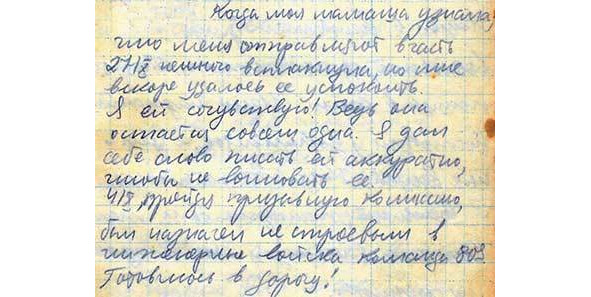 Когда моя мамаша узнала,
что меня отправляют в часть
27/IX немного всплакнула, но мне
вскоре удалось её успокоить.
Я ей сочувствую! Ведь она
остаётся совсем одна. Я дал
себе слово писать ей аккуратно,
чтобы не волновать её.
4/IX, пройдя призывную комиссию,
был назначен не строевым в
инженерные войска команда 809
Готовлюсь в дорогу!